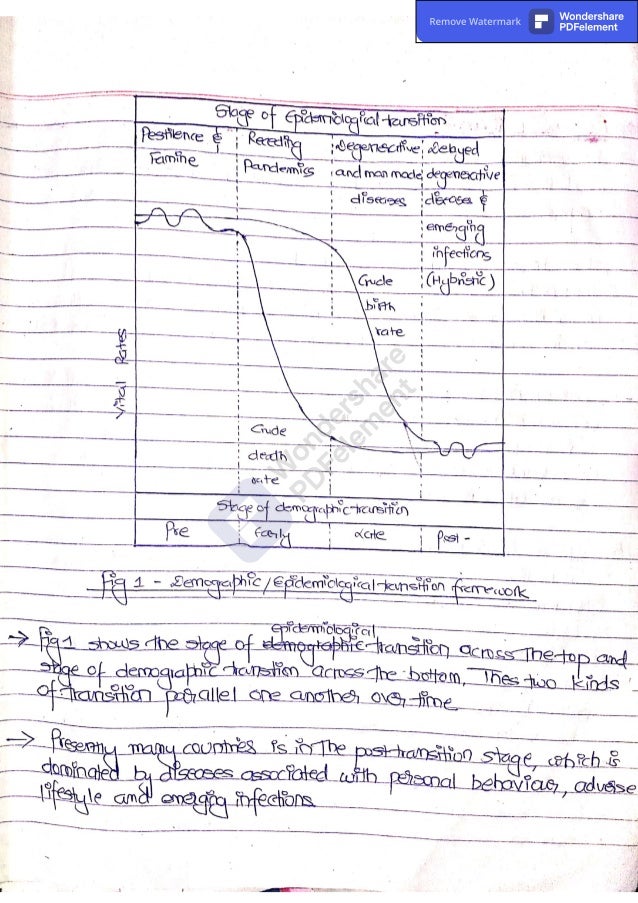 Remove Watermark
Wondershare
PDFelement
Stage of Epidemiological transition
Pestilence & Receding Degenerative Delayed
Famine Pandemics and man made degenerative
diseases diseases &
emerging
infections
Crude (Hybristic)
birth
rate
Vital Rates
Crude
death
rate
Wondershare
PDFelement
Stage of demographic transition
Pre Early Late Post -
Fig 1 - Demographic / Epidemiological transition framework
epidemiological
→ Fig 1 shows the stage of demographic transition across the top and
stage of demographic transition across the bottom, Thes two kinds
of transition parallel one another over time
→ Presently many countries is in the post transition stage, which is
dominated by diseases associated with personal behaviour, adverse
lifestyle and emergig infections.